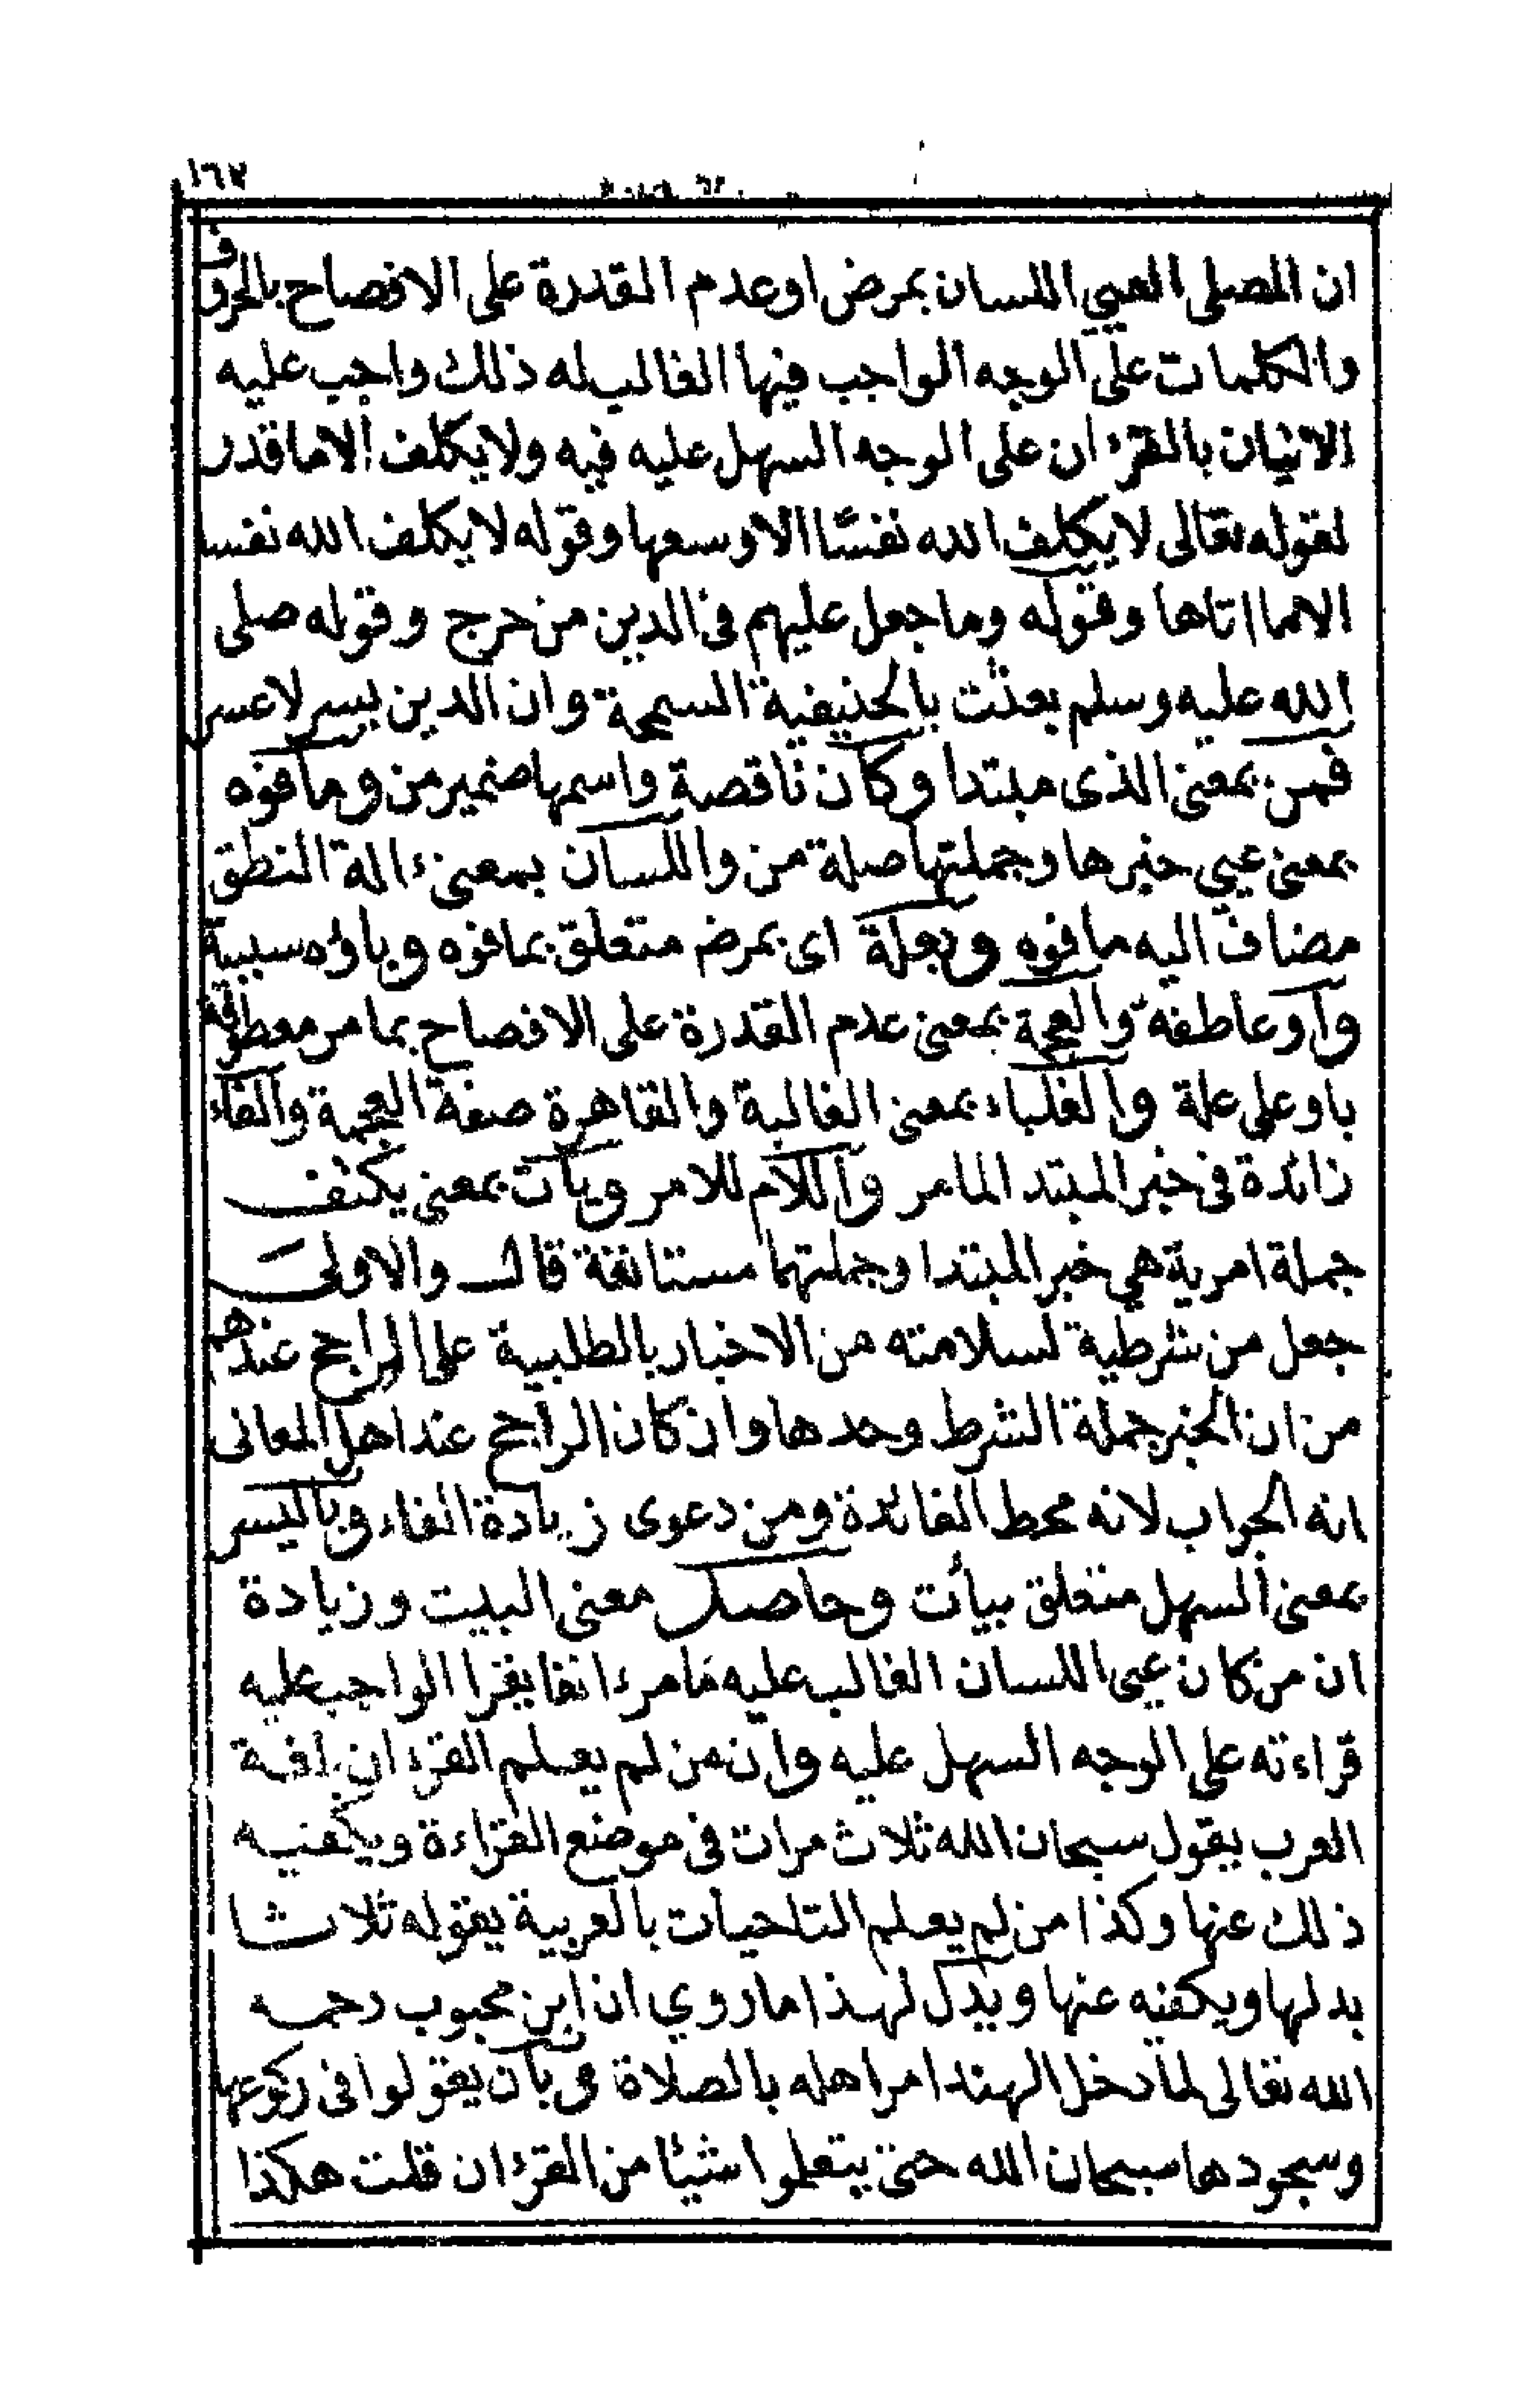 ١٦٧
ان المصلى العيي اللسان بمرض او عدم القدرة على الافصاح بالحروف
والكلمات على الوجه الواجب فيها الغالب له ذلك واجب عليه
الاتيان بالقرءان على الوجه السهل عليه فيه ولا يكلف الا ما قدر
لقوله تعالى لا يكلف الله نفسا الا وسعها وقوله لا يكلف الله نفسا
الا ما اتاها وقوله وما جعل عليهم فى الدين من حرج وقوله صلى
الله عليه وسلم بعثت بالحنيفية السمحة وان الدين يسر لا عسر
فمن بمعنى الذى مبتدا وكان ناقصة واسمها ضمير من ومافوه
بمعنى عيي خبرها وجملتها صلة من واللسان بمعنى ءالة النطق
مضاف اليه مافوه وبعلة اى بمرض متعلق بمافوه وباؤه سببية
واو عاطفة والعجمة بمعنى عدم القدرة على الافصاح بما مر معطوفة
باو على علة والغلباء بمعنى الغالبة والقاهرة صفة العجمة والفاء
زائدة فى خبر المبتد الما مر واللام للامر ويات بمعنى يكتف
جملة امرية هي خبر المبتدا وجملتهما مستانفة قال والاولى
جعل من شرطية لسلامته من الاخبار بالطلبية على الراجح عندهم
من ان الخبر جملة الشرط وحدها وان كان الراجح عند اهل المعانى
انه الجواب لانه محط الفائدة ومن دعوى زيادة الفاء وباليسر
بمعنى السهل متعلق بيأت وحاصل معنى البيت وزيادة
ان من كان عيى اللسان الغالب عليه ما مر ءانفا يقرا الواجب عليه
قراءته على الوجه السهل عليه وان من لم يعلم القرءان بلغة
العرب يقول سبحان الله ثلاث مرات فى موضع القراءة ويكفيه
ذلك عنها وكذا من لم يعلم التاحيات بالعربية يقوله ثلاثا
بدلها ويكفيه عنها ويدل لهذا ما روي ان ابن محبوب رحمه
الله تعالى لما دخل الهند امر اهله بالصلاة وبان يقولوا فى ركوعها
وسجودها سبحان الله حتى يتعلموا شيئا من القرءان قلت هكذا